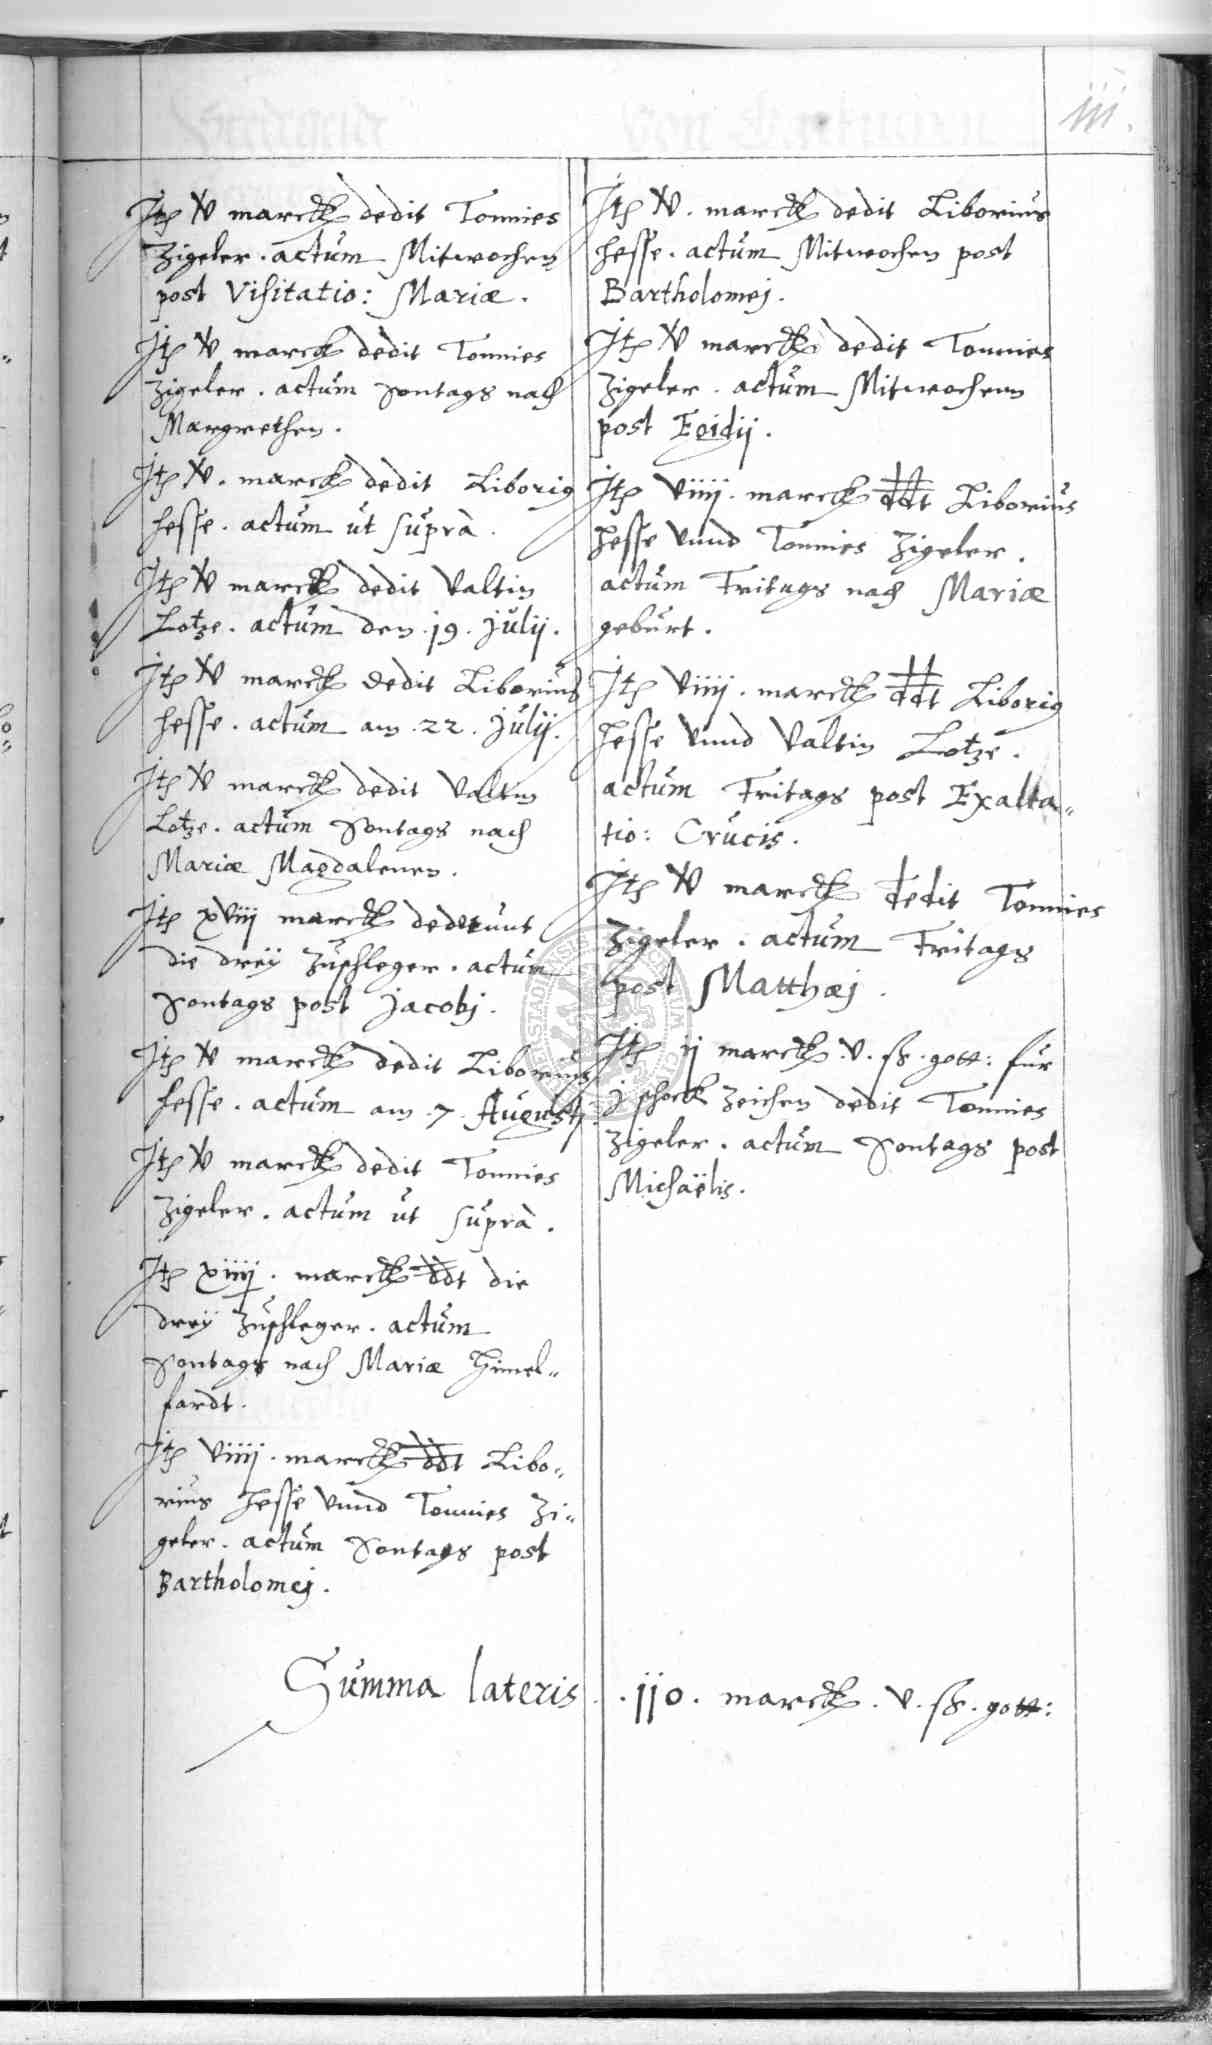 iii.
Jtem v̷ marck dedit Tonnies
Zigeler . actum Mitwochen
post Visitatio: Mariæ .
Jtem v̷ marck dedit Tonnies
Zigeler . actum Sontags nach
Margrethen .
Jtem v̷ . marck dedit Liborius
Hesse . actum ut suprà .
Jtem v̷ marck dedit Valtin
Lotze . actum den .19. Julij .
Jtem v̷ marck dedit Liborius
Hesse . actum am .22. Julij .
Jtem v̷ marck dedit Valtin
Lotze . actum Sontags nach
Mariæ Magdalenen .
Jtem xviii marck dederunt
die dreÿ Zuschleger . actum
Sontags post Jacobj .
Jtem v̷ marck dedit Liborius
Hesse . actum am .7. Augustj .
Jtem v̷ marck dedit Tonnies
Zigeler . actum ut suprà .
Jtem xiiij̷ . marck ddt die
dreÿ Zuschleger . actum
Sontags nach Mariæ Himel„
fardt .
Jtem viiij . marck ddt Libo„
rius Hesse vnnd Tonnies Zi„
geler . actum Sontags post
Bartholomej .
Jtem v̷ . marck dedit Liborius
Hesse . actum Mitwochen post
Bartholomej .
Jtem v̷ marck dedit Tonnies
Zigeler . actum Mitwochenn
post Egidij .
Jtem viiij . marck ddt Liborius
Hesse vnnd Tonnies Zigeler .
actum Fritags nach Mariæ
geburt .
Jtem viiij . marck ddt Liborius
Hesse vnnd Valtin Lotze .
actum Fritags post Exalta„
tio: Crucis .
Jtem v̷ marck dedit Tonnies
Zigeler . actum Fritags
post Matthæj .
Jtem ij marck . v . ß . gott: für
j schock Zeichen dedit Tonnies
Zigeler . actum Sontags post
Michaëlis .
Summa lateris . . 110 . marck . v . ß . gott: